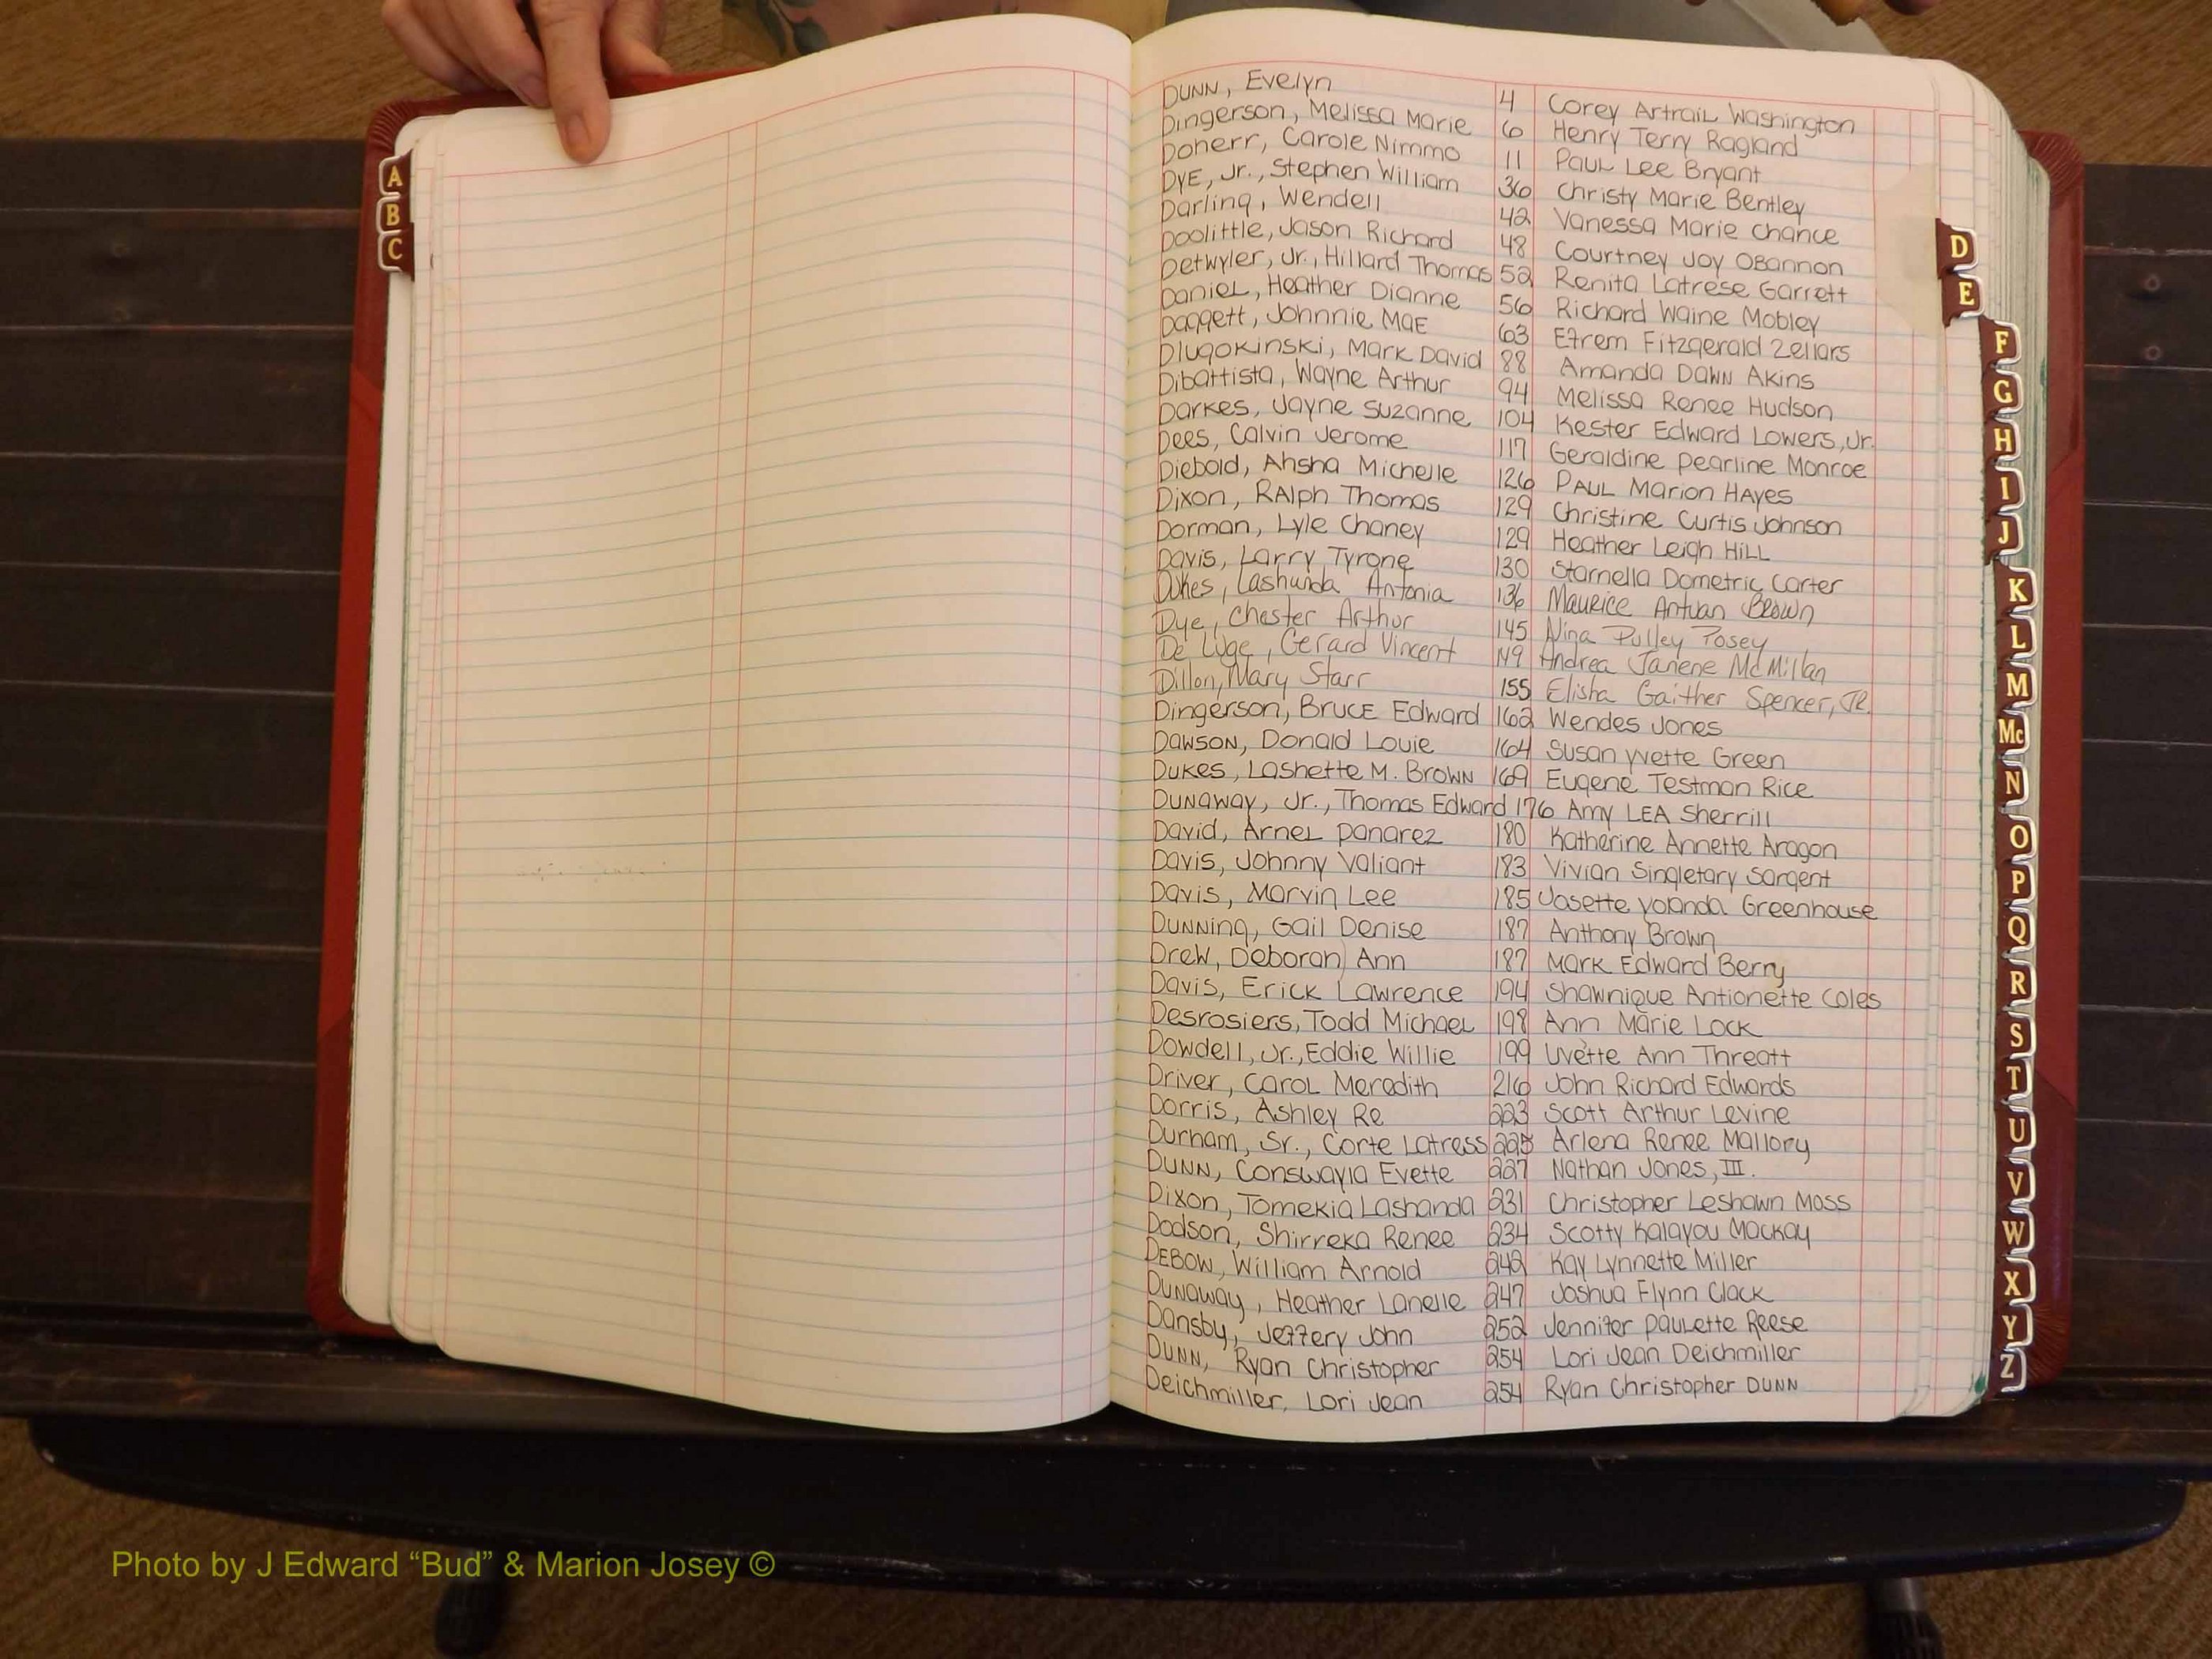 DUNN, Evelyn 4 Corey Artrail Washington
Dingerson, Melissa Marie 6 Henry Terry Ragland
Doherr, Carole Nimmo 11 Paul Lee Bryant
DYE, Jr., Stephen William 36 Christy Marie Bentley
Darling, Wendell 42 Vanessa Marie Chance
Doolittle, Jason Richard 48 Courtney Joy OBannon
Detwyler, Jr., Hillard Thomas 52 Renita Latrese Garrett
Daniel, Heather Dianne 56 Richard Waine Mobley
Daggett, Johnnie Mae 63 Efrem Fitzgerald Zellars
Dlugokinski, Mark David 88 Amanda Dawn Akins
Dibattista, Wayne Arthur 94 Melissa Renee Hudson
Darkes, Jayne Suzanne 104 Kester Edward Lowers, Jr.
Dees, Calvin Jerome 117 Geraldine Pearline Monroe
Diebold, Ahsha Michelle 126 Paul Marion Hayes
Dixon, Ralph Thomas 129 Christine Curtis Johnson
Dorman, Lyle Chaney 129 Heather Leigh Hill
Davis, Larry Tyrone 130 Starnella Dometric Carter
Dukes, Lashunda Antonia 136 Maurice Antuan Brown
Dye, Chester Arthur 145 Nina Pulley Posey
De Luge, Gerard Vincent 149 Andrea Janene McMillan
Dillon, Mary Starr 155 Elisha Gaither Spencer, JR.
Dingerson, Bruce Edward 162 Wendes Jones
Dawson, Donald Louie 164 Susan Yvette Green
Dukes, Lashette M. Brown 169 Eugene Testman Rice
Dunaway, Jr., Thomas Edward 176 Amy LEA Sherrill
David, Arnel Panarez 180 Katherine Annette Aragon
Davis, Johnny Valiant 183 Vivian Singletary Sargent
Davis, Marvin Lee 185 Josette Yolanda Greenhouse
Dunning, Gail Denise 187 Anthony Brown
Drew, Deborah Ann 187 Mark Edward Berry
Davis, Erick Lawrence 194 Shawnique Antionette Coles
Desrosiers, Todd Michael 198 Ann Marie Lock
Dowdell, Jr., Eddie Willie 199 Uvette Ann Threatt
Driver, Carol Meredith 216 John Richard Edwards
Dorris, Ashley Re 223 Scott Arthur Levine
Durham, Sr., Corte Latress 225 Arlena Renee Mallory
DUNN, Conswayla Evette 227 Nathan Jones, III.
Dixon, Tomekia Lashanda 231 Christopher Leshawn Moss
Dodson, Shirreka Renee 234 Scotty Kalayou Mackay
DEBOW, William Arnold 242 Kay Lynnette Miller
Dunaway, Heather Lanelle 247 Joshua Flynn Clack
Dansby, Jeffery John 252 Jennifer Paulette Reese
DUNN, Ryan Christopher 254 Lori Jean Deichmiller
Deichmiller, Lori Jean 254 Ryan Christopher DUNN
A
B
C
D
E
F
G
H
I
J
K
L
M
Mc
N
O
P
Q
R
S
T
U
V
W
X
Y
Z
Photo by J Edward “Bud” & Marion Josey ©